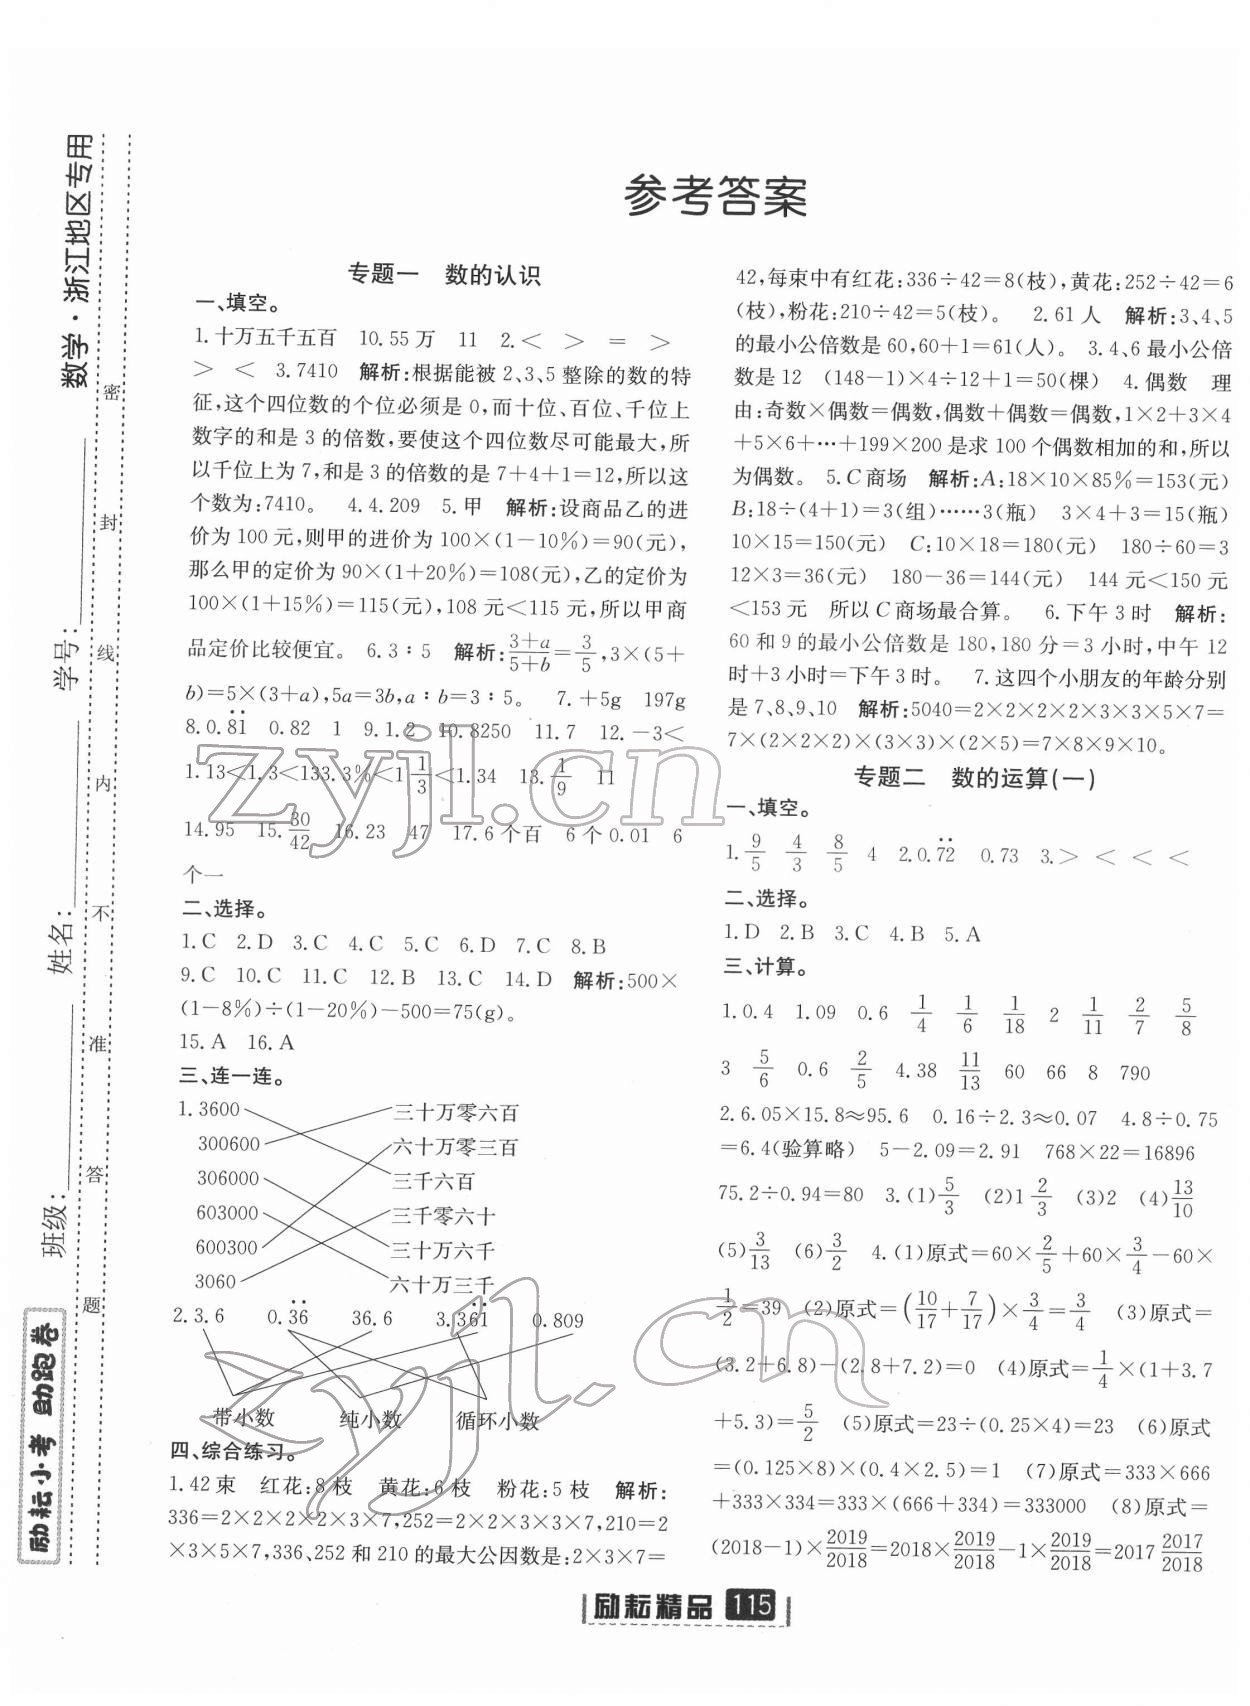 参考答案
数学·浙江地区专用
学号:
姓名:
班级:
密 封 线 内 不 准 答 题
励耘小考 助跑卷
专题一 数的认识
一、填空。
1.十万五千五百 10.55万 11 2.< > = >
> < 3.7410 解析:根据能被2、3、5整除的数的特
征,这个四位数的个位必须是0,而十位、百位、千位上
数字的和是3的倍数,要使这个四位数尽可能最大,所
以千位上为7,和是3的倍数的是7+4+1=12,所以这
个数为:7410。 4.4.209 5.甲 解析:设商品乙的进
价为100元,则甲的进价为100×(1-10%)=90(元),
那么甲的定价为90×(1+20%)=108(元),乙的定价为
100×(1+15%)=115(元),108元<115元,所以甲商
品定价比较便宜。 6.3∶5 解析:(3+a)/(5+b)=3/5,3×(5+
b)=5×(3+a),5a=3b,a∶b=3∶5。 7.+5g 197g
8.0.8̇1̇ 0.82 1 9.1.2 10.8250 11.7 12.-3<
1.13<1.3<133.3%<1 1/3<1.34 13.1/9 11
14.95 15.30/42 16.23 47 17.6个百 6个0.01 6
个一
二、选择。
1.C 2.D 3.C 4.C 5.C 6.D 7.C 8.B
9.C 10.C 11.C 12.B 13.C 14.D 解析:500×
(1-8%)÷(1-20%)-500=75(g)。
15.A 16.A
三、连一连。
1.3600 三十万零六百
300600 六十万零三百
306000 三千六百
603000 三千零六十
600300 三十万六千
3060 六十万三千
2.3.6 0.3̇6̇ 36.6 3.36̇1̇ 0.809
带小数 纯小数 循环小数
四、综合练习。
1.42束 红花:8枝 黄花:6枝 粉花:5枝 解析:
336=2×2×2×2×3×7,252=2×2×3×3×7,210=2
×3×5×7,336、252和210的最大公因数是:2×3×7=
42,每束中有红花:336÷42=8(枝),黄花:252÷42=6
(枝),粉花:210÷42=5(枝)。 2.61人 解析:3、4、5
的最小公倍数是60,60+1=61(人)。 3.4、6最小公倍
数是12 (148-1)×4÷12+1=50(棵) 4.偶数 理
由:奇数×偶数=偶数,偶数+偶数=偶数,1×2+3×4
+5×6+…+199×200是求100个偶数相加的和,所以
为偶数。 5.C商场 解析:A:18×10×85%=153(元)
B:18÷(4+1)=3(组)……3(瓶) 3×4+3=15(瓶)
10×15=150(元) C:10×18=180(元) 180÷60=3
12×3=36(元) 180-36=144(元) 144元<150元
<153元 所以C商场最合算。 6.下午3时 解析:
60和9的最小公倍数是180,180分=3小时,中午12
时+3小时=下午3时。 7.这四个小朋友的年龄分别
是7、8、9、10 解析:5040=2×2×2×2×3×3×5×7=
7×(2×2×2)×(3×3)×(2×5)=7×8×9×10。
专题二 数的运算(一)
一、填空。
1.9/5 4/3 8/5 4 2.0.7̇2̇ 0.73 3.> < < <
二、选择。
1.D 2.B 3.C 4.B 5.A
三、计算。
1.0.4 1.09 0.6 1/4 1/6 1/18 2 1/11 2/7 5/8
3 5/6 0.6 2/5 4.38 11/13 60 66 8 790
2.6.05×15.8≈95.6 0.16÷2.3≈0.07 4.8÷0.75
=6.4(验算略) 5-2.09=2.91 768×22=16896
75.2÷0.94=80 3.(1)5/3 (2)1 2/3 (3)2 (4)13/10
(5)3/13 (6)3/2 4.(1)原式=60×2/5+60×3/4-60×
1/2=39 (2)原式=(10/17+7/17)×3/4=3/4 (3)原式=
(3.2+6.8)-(2.8+7.2)=0 (4)原式=1/4×(1+3.7
+5.3)=5/2 (5)原式=23÷(0.25×4)=23 (6)原式
=(0.125×8)×(0.4×2.5)=1 (7)原式=333×666
+333×334=333×(666+334)=333000 (8)原式=
(2018-1)×2019/2018=2018×2019/2018-1×2019/2018=2017 2017/2018
励耘精品 115
zyjl.cn
zyjl.cn